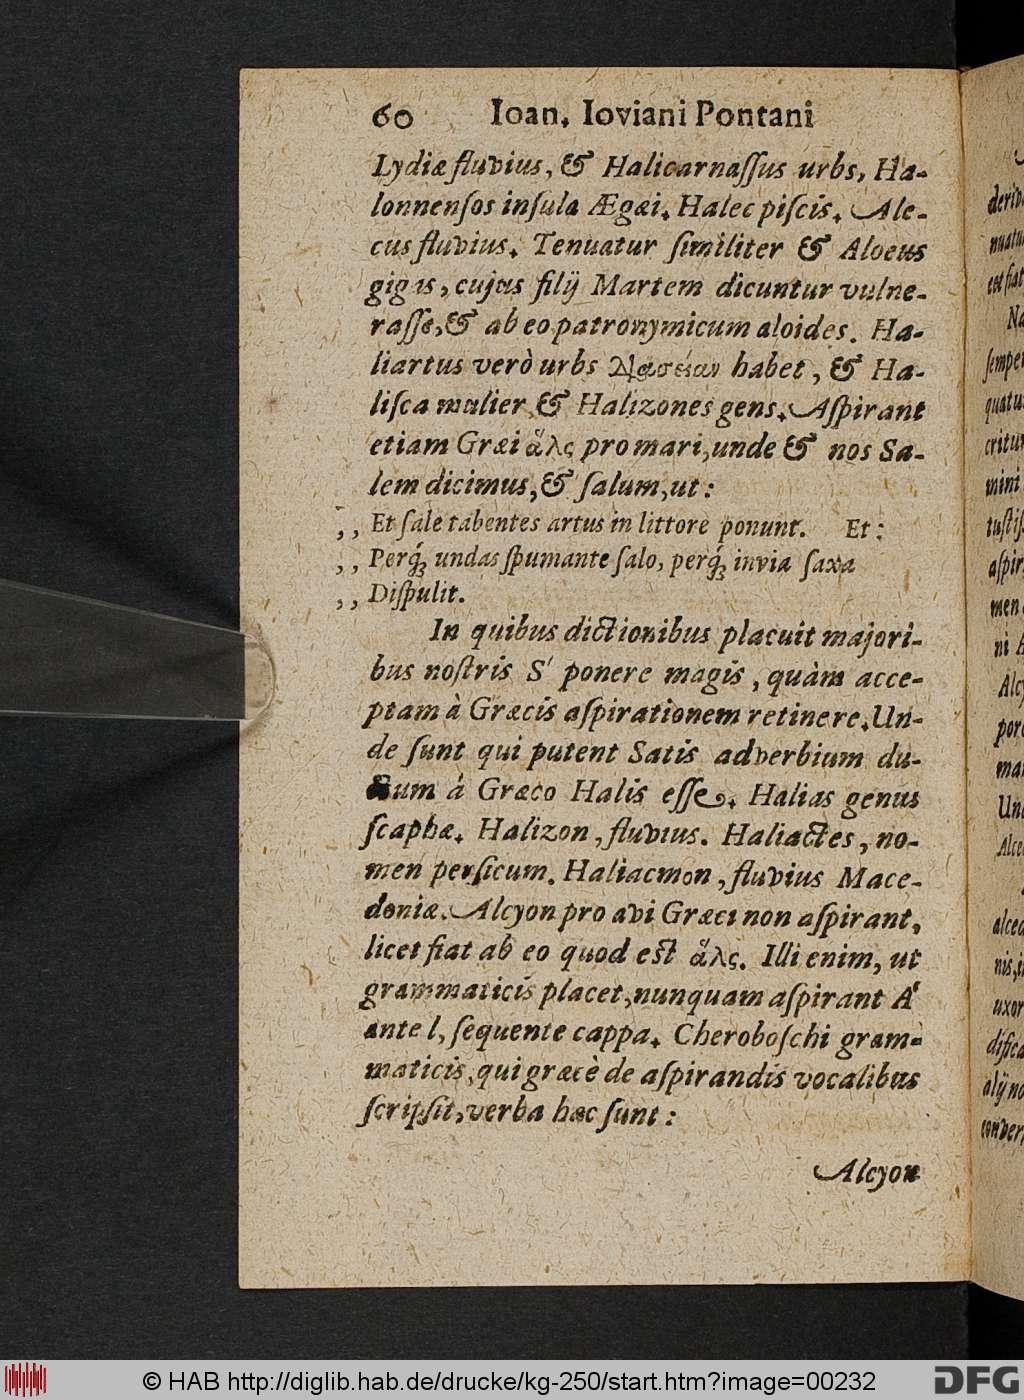 60 Ioan. Ioviani Pontani
Lydiæ fluvius, & Halicarnaſſus urbs, Ha-
lonnenſos inſula Ægæi. Halec piſcis. Ale-
cus fluvius. Tenuatur ſimiliter & Aloeus
gigas, cujus filij Martem dicuntur vulne-
raſſe, & ab eo patronymicum aloides. Ha-
liartus verò urbs habet, & Ha-
liſca mulier & Halizones gens. Aſpirant
etiam Græi ἅλς pro mari, unde & nos Sa-
lem dicimus, & ſalum, ut:
,, Et ſale tabentes artus in littore ponunt. Et:
,, Perq́ꝫ undas ſpumante ſalo, perq́ꝫ invia ſaxa
,, Diſpulit.
In quibus dictionibus placuit majori-
bus noſtris S' ponere magis, quàm acce-
ptam à Græcis aſpirationem retinere. Un-
de ſunt qui putent Satis adverbium du-
ctum á Græco Halis eſſe. Halias genus
ſcaphæ. Halizon, fluvius. Haliactes, no-
men perſicum. Haliacmon, fluvius Mace-
doniæ. Alcyon pro avi Græci non aſpirant,
licet fiat ab eo quod est ἅλς. Illi enim, ut
grammaticis placet, nunquam aſpirant A'
ante l, ſequente cappa. Cheroboſchi gram-
maticis, qui græcè de aſpirandis vocalibus
ſcripſit, verba hæc ſunt:
Alcyon
© HAB http://diglib.hab.de/drucke/kg-250/start.htm?image=00232
DFG